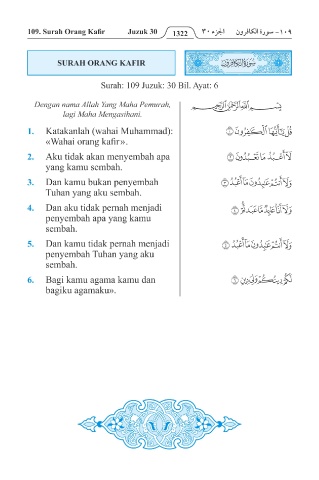 109. Surah Orang Kafir Juzuk 30 1322 الجزء ٣٠ ١٠٩ - سورة الكافرون
SURAH ORANG KAFIR
سُورَةُ الكَافِرُونَ
Surah: 109 Juzuk: 30 Bil. Ayat: 6
Dengan nama Allah Yang Maha Pemurah,
lagi Maha Mengasihani.
بِسْمِ اللَّهِ الرَّحْمَٰنِ الرَّحِيمِ
1. Katakanlah (wahai Muhammad):
«Wahai orang kafir».
قُلْ يَٰٓأَيُّهَا ٱلْكَٰفِرُونَ ١
2. Aku tidak akan menyembah apa
yang kamu sembah.
لَآ أَعْبُدُ مَا تَعْبُدُونَ ٢
3. Dan kamu bukan penyembah
Tuhan yang aku sembah.
وَلَآ أَنتُمْ عَٰبِدُونَ مَآ أَعْبُدُ ٣
4. Dan aku tidak pernah menjadi
penyembah apa yang kamu
sembah.
وَلَآ أَنَا۠ عَابِدٌ مَّا عَبَدتُّمْ ٤
5. Dan kamu tidak pernah menjadi
penyembah Tuhan yang aku
sembah.
وَلَآ أَنتُمْ عَٰبِدُونَ مَآ أَعْبُدُ ٥
6. Bagi kamu agama kamu dan
bagiku agamaku».
لَكُمْ دِينُكُمْ وَلِىَ دِينِ ٦